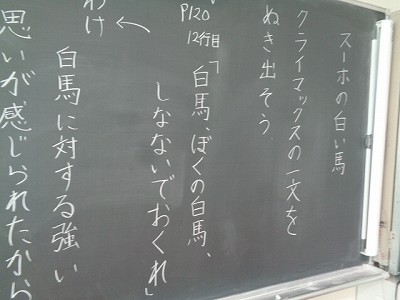 スーホの白い馬
クライマックスの一文を
ぬき出そう。
P120
12行目
「白馬、ぼくの白馬、
しなないでおくれ」
わけ
白馬に対する強い
思いが感じられたから